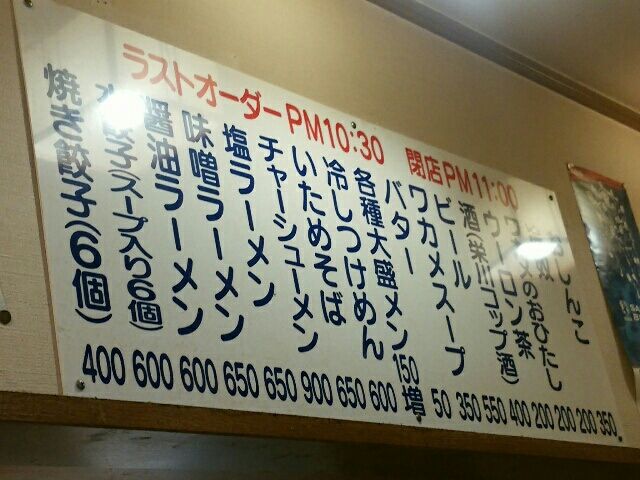 ラストオーダーPM10:30 閉店PM11:00
焼き餃子(6個) 400
水餃子(スープ入り6個) 600
醤油ラーメン 600
味噌ラーメン 650
塩ラーメン 650
チャーシューメン 900
いためそば 650
冷しつけめん 600
各種大盛メン 150増
バター 50
ワカメスープ 350
ビール 550
酒(栄川コップ酒) 400
ウーロン茶 200
ワカメのおひたし 200
奴 200
おしんこ 350